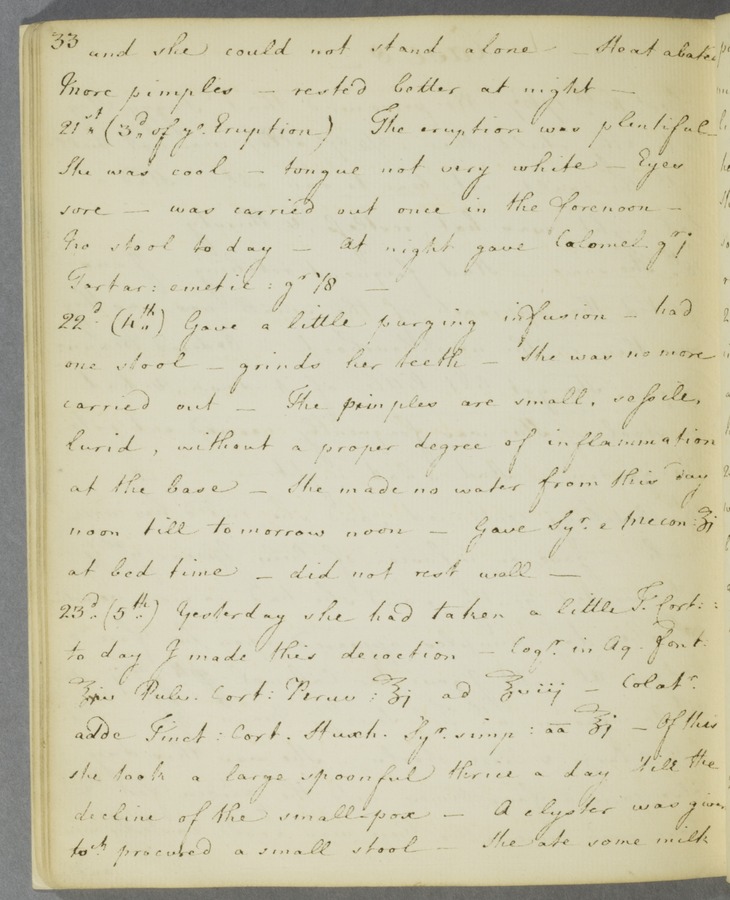 33 and she could not stand alone – Heat abated
More pimples – rested better at night –
21st (3d of ye Eruption) The eruption was plentiful
She was cool – tongue not very white – Eyes
sore – was carried out once in the forenoon –
No stool to day – At night gave Calomel gr j
Tartar: emetic: gr 1/8 –
22d (4th) Gave a little purging infusion – had
one stool – grinds her teeth – She was no more
carried out – The pimples are small, sessile,
lurid, without a proper degree of inflammation
at the base – She made no water from this day
noon till tomorrow noon – Gave Syr. e Mecon: ʒj
at bed time – did not rest well –
23d (5th) Yesterday she had taken a little T. Cort::
to day I made this decoction – Coqr. in Aq. Font.
Pulv. Cort: Peruv: ℥j ad ℥viij – Colatr.
adde Tinct: Cort. Huxh. Syr. simp: aa ℥j – Of this
she took a large spoonful thrice a day till the
decline of the small-pox – A clyster was given
wch procured a small stool – She ate some milk